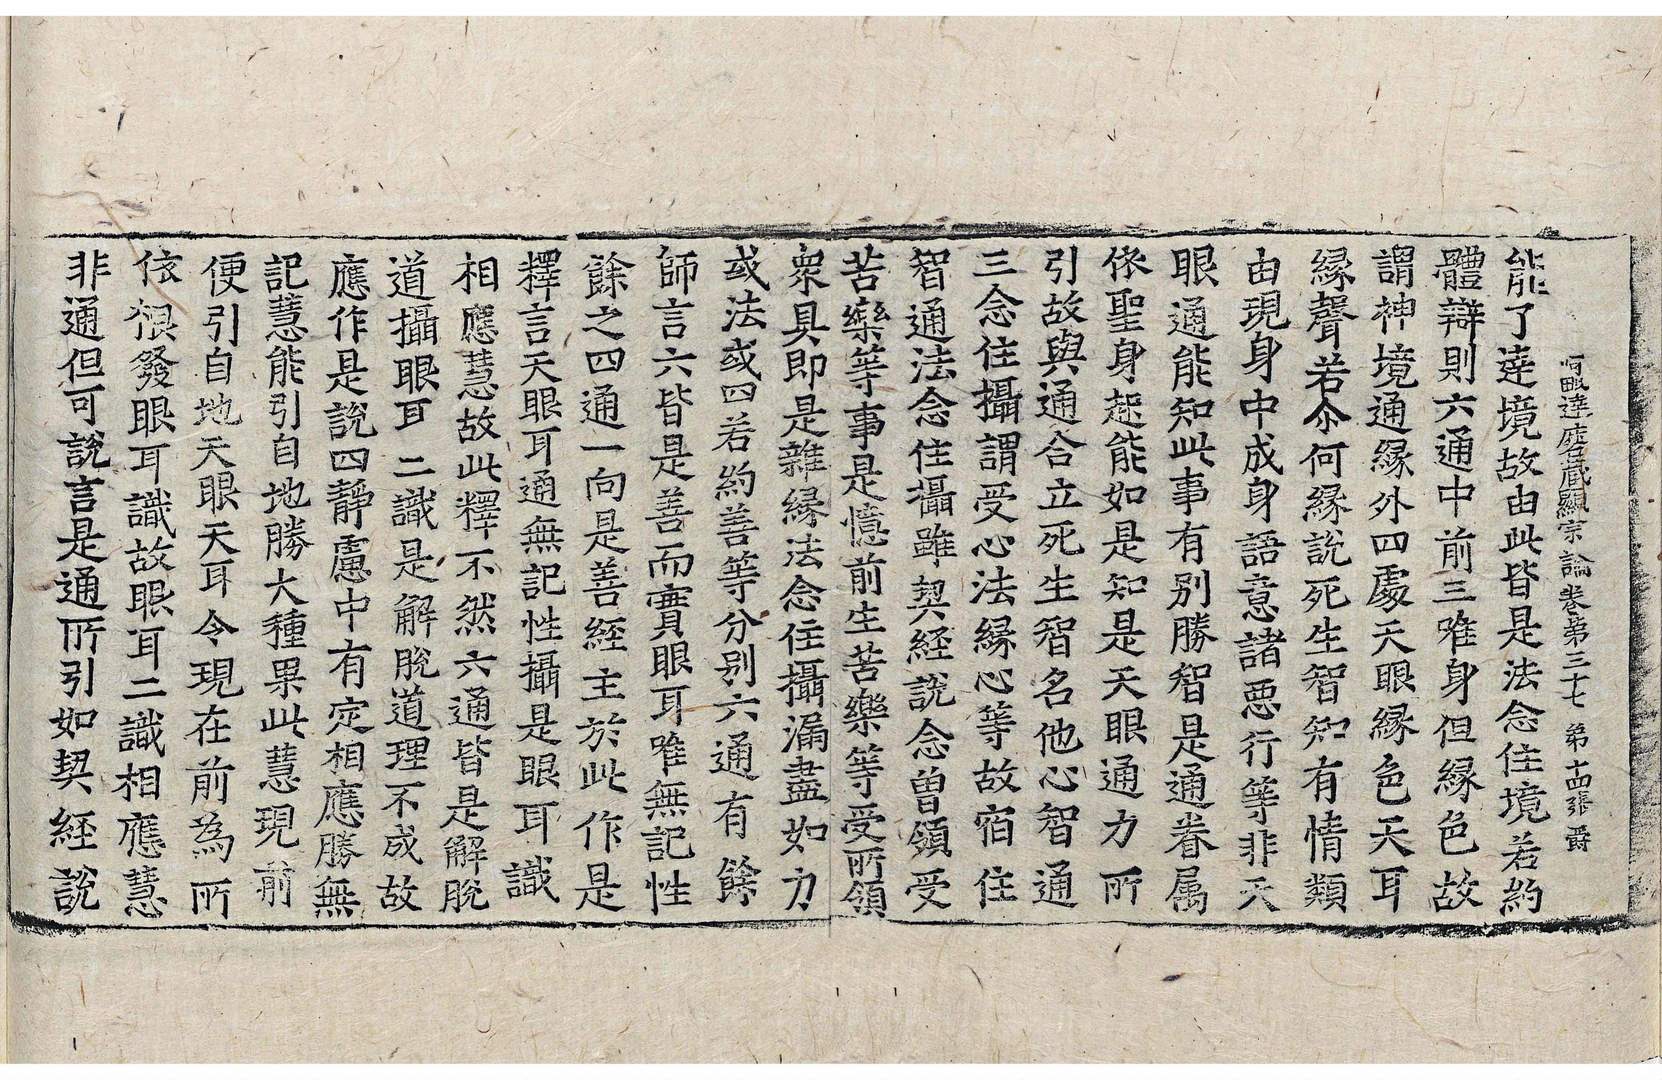 阿毗達磨藏顯宗論卷第三十七 第十四張 爵
能了達境故由此皆是法念住境若約
體辯則六通中前三唯身但緣色故
謂神境通緣外四處天眼緣色天耳
緣聲若尒何緣說死生智知有情類
由現身中成身語意諸惡行等非天
眼通能知此事有別勝智是通眷属
依聖身起能如是知是天眼通力所
引故與通合立死生智名他心智通
三念住攝謂受心法緣心等故宿住
智通法念住攝雖契經說念曾領受
苦樂等事是憶前生苦樂等受所領
衆具即是雜緣法念住攝漏盡如力
或法或四若約善等分別六通有餘
師言六皆是善而實眼耳唯無記性
餘之四通一向是善經主於此作是
釋言天眼耳通無記性攝是眼耳識
相應慧故此釋不然六通皆是解脫
道攝眼耳二識是解脫道理不成故
應作是說四靜慮中有定相應勝無
記慧能引自地勝大種果此慧現前
便引自地天眼天耳令現在前為所
依根發眼耳識故眼耳二識相應慧
非通但可說言是通所引如契經說